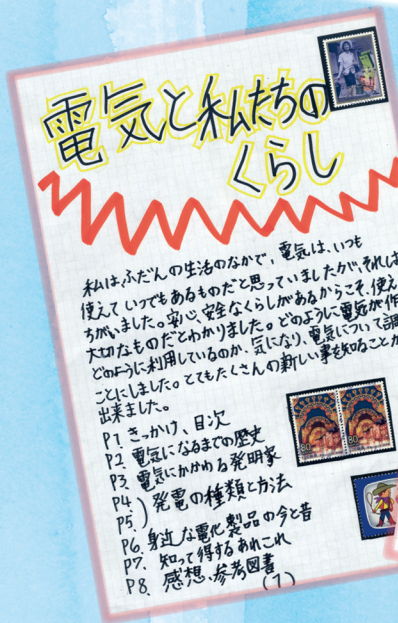 電気と私たちの
くらし
私はふだんの生活のなかで、電気は、いつも
使えていつでもあるものだと思っていましたが、それは
ちがいました。安心、安全なくらしがあるからこそ、使え
大切なものだとわかりました。どのように電気が作
どのように利用しているのか、気になり、電気について調
ことにしました。とてもたくさんの新しい事を知ることが
出来ました。
P1 きっかけ、目次
P2. 電気になるまでの歴史
P3 電気にかかわる発明家
P4 ) 発電の種類と方法
P5.
P6. 身近な電化製品の今と昔
P7. 知って得するあれこれ
P8. 感想、参考図書
(1)
80
80